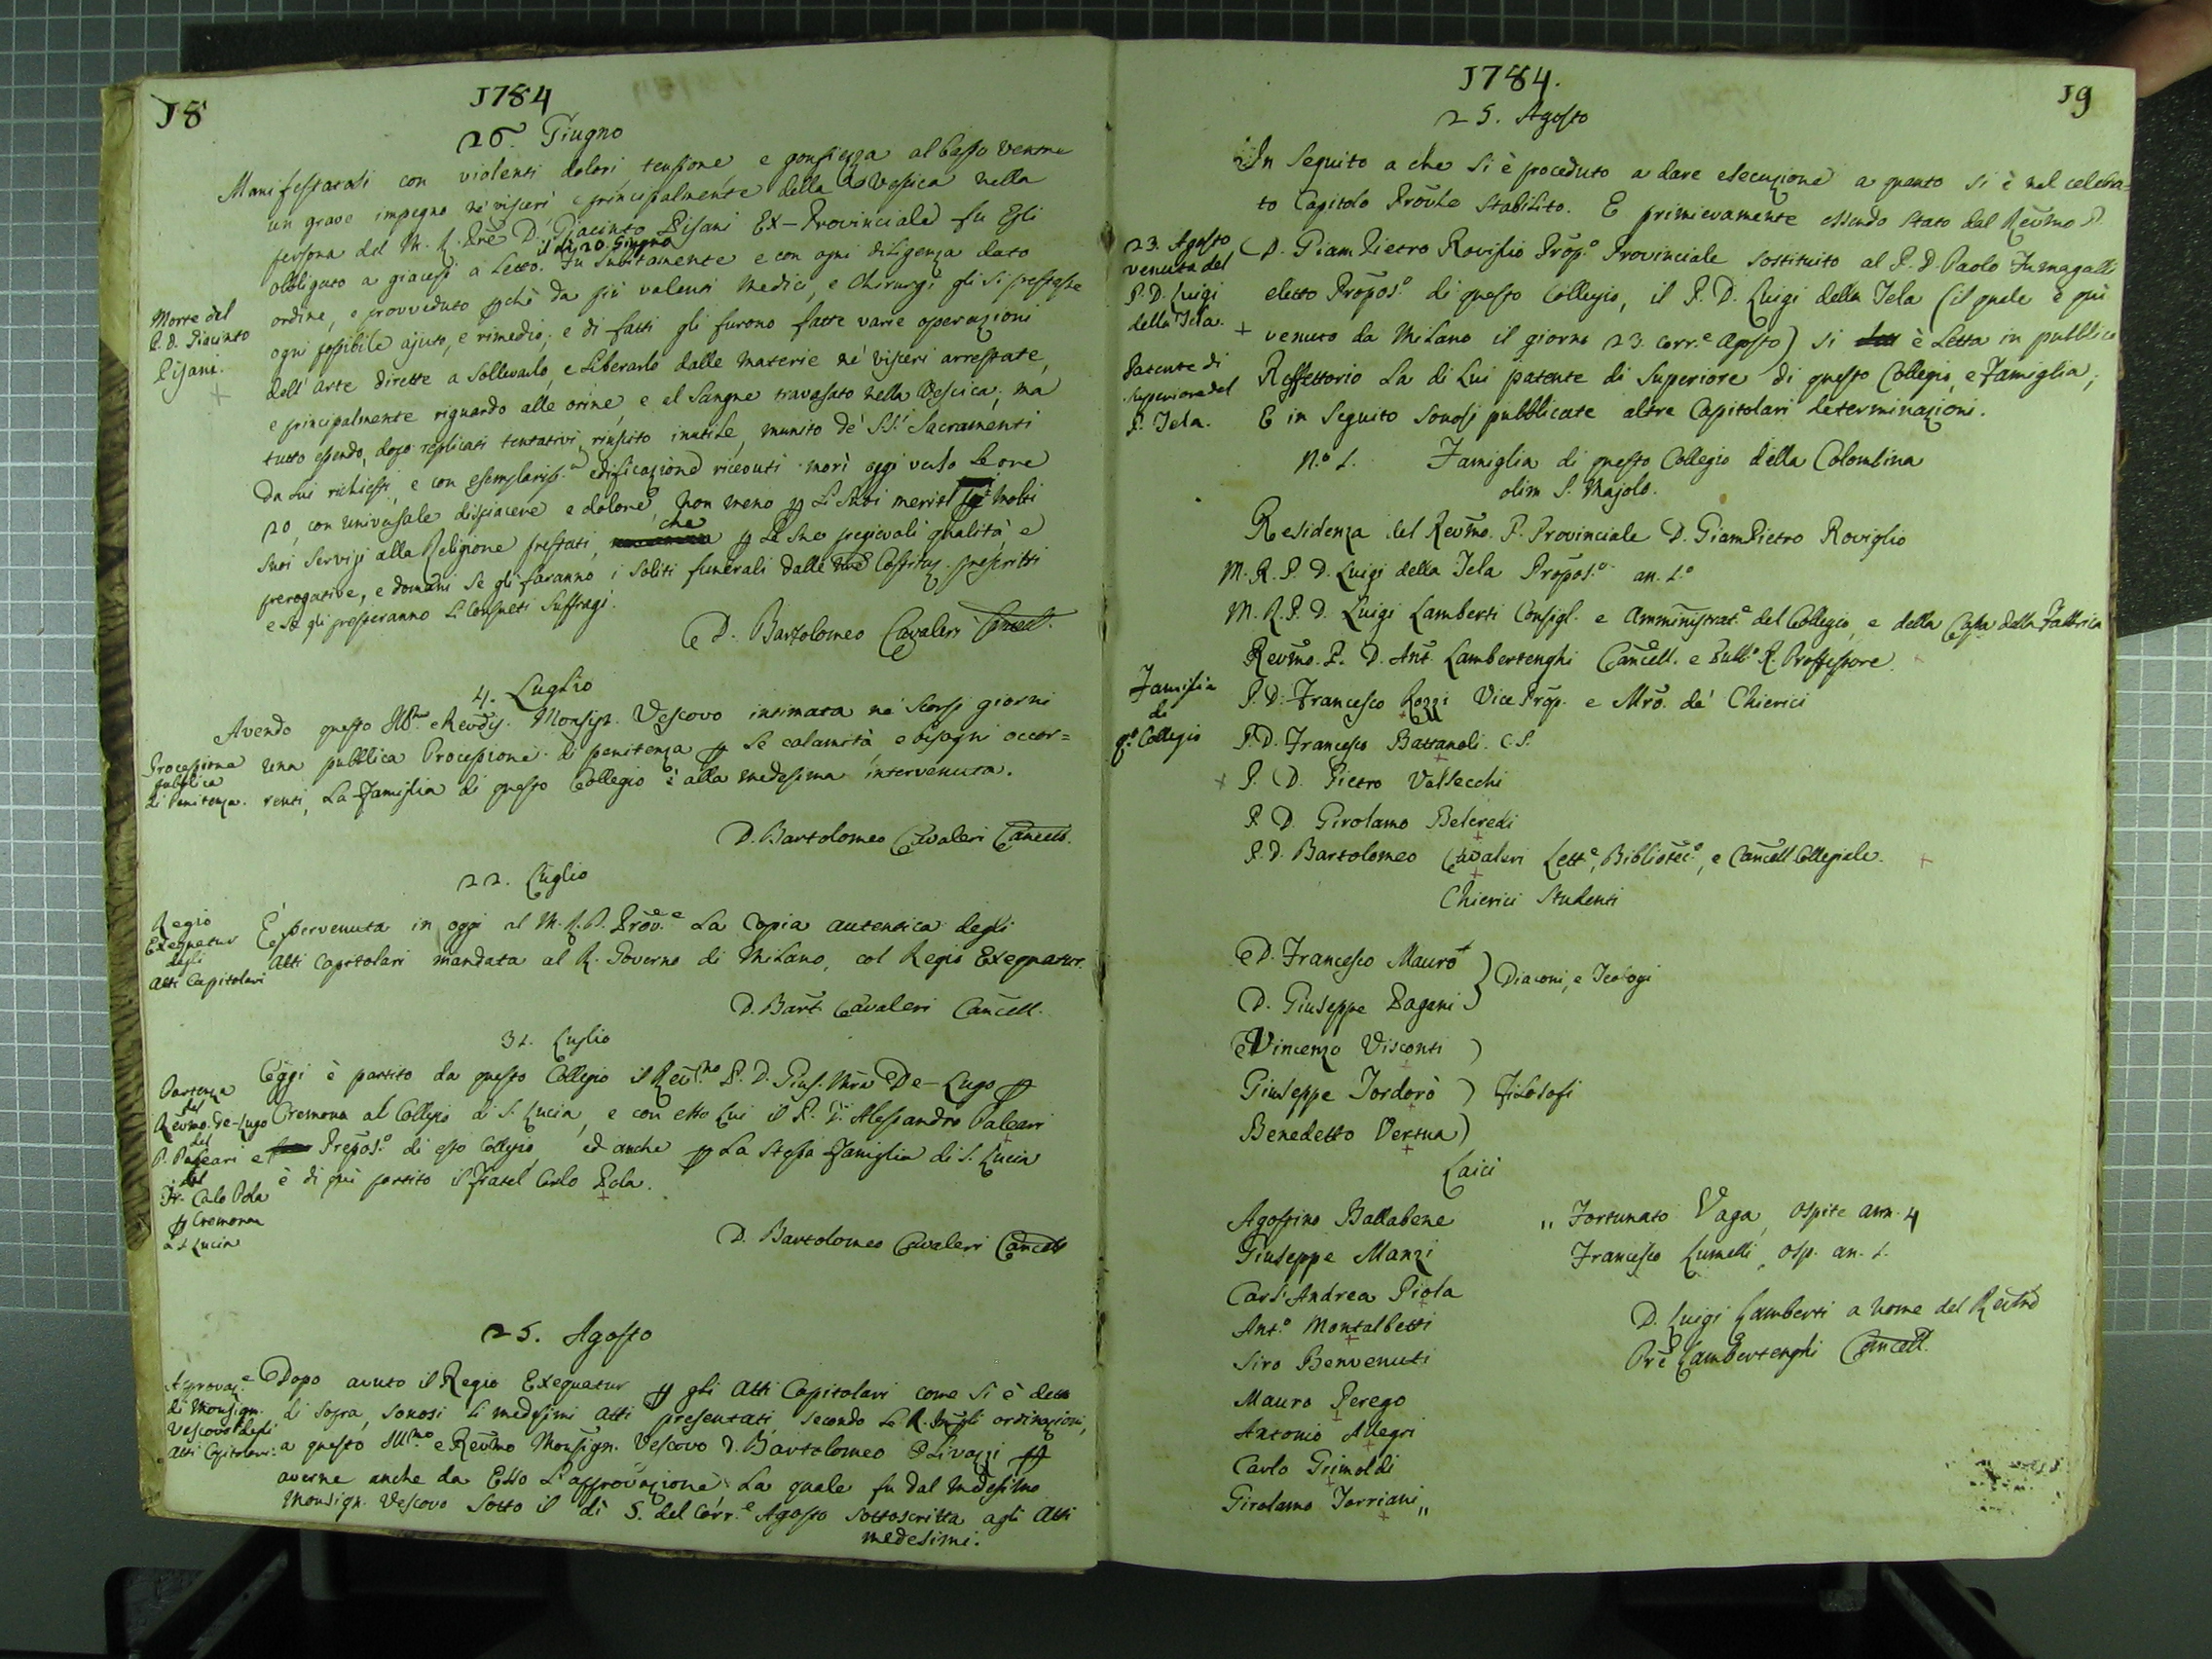 18
1784
26. Giugno
Manifestatasi con violenti dolori tensione e gonfiezza al basso ventre
un grave impegno ne' visceri principalmente della Vessica nella
persona del M. R. Pre D. Giacinto Pisani Ex-Provinciale fu Egli
il dì 20. Giugno
obbligato a giacersi a Letto. Fu subitamente e con ogni diligenza dato
ordine, e provveduto pchè da più valenti Medici, e Chirurgi gli si prestasse
Morte del
P. D. Giacinto
Pisani.
ogni possibile ajuto, e rimedio; e di fatti gli furono fatte varie operazioni
dell' arte dirette a sollevarlo, e Liberarlo dalle materie ne' visceri arrestate,
e principalmente riguardo alle orine, e al Sangue travasato nella Vescica; ma
tutto essendo, dopo replicati tentativi, riuscito inutile, munito de' SS.i Sacramenti
da Lui richiesti, e con esemplariss.a edificazione ricevuti morì oggi verso Le ore
20, con universale dispiacere e dolore, non meno p Li Suoi meriti molti
suoi Servigj alla Religione prestati, che p Le Sue pregievoli qualità e
prerogative, e domani se gli faranno i soliti funerali dalle Costituz. prescritti
e se gli presteranno Li Consueti Suffragi.
D. Bartolomeo Cavaleri Cancell.
4. Luglio
Avendo questo Ill.mo e Revdis. Monsign. Vescovo intimata ne' scorsi giorni
Processione
pubblica
di Penitenza.
una pubblica Processione di penitenza p Le calamità, e bisogni occor=
renti, La Famiglia di questo Collegio è alla medesima intervenuta.
D. Bartolomeo Cavaleri Cancell.
22. Luglio
Regio
Exequatur
degli
Atti Capitolari
È pervenuta in oggi al M. R. P. Prov.e La Copia autentica degli
Atti Capitolari mandata al R. Governo di Milano, col Regio Exequatur.
D. Bart. Cavaleri Cancell.
31. Luglio
Partenza
del
Revmo. De-Lugo
del
P. Paleari e
del
Fr. Carlo Pola
p Cremona
a S. Lucia
Oggi è partito da questo Collegio il Rev.mo P. D. Gius. Mra De-Lugo p
Cremona al Collegio di S. Lucia, e con esso Lui il P. D. Alessandro Paleari
Prepos.o di esso Collegio, ed anche p La Stessa Famiglia di S. Lucia
è di quì partito il Fratel Carlo Pola.
D. Bartolomeo Cavaleri Cancell
25. Agosto
Approvaz.e
di Monsign.
Vescovo degli
Atti Capitolari:
Dopo avuto il Regio Exequatur p gli Atti Capitolari come si è detto
di sopra, sonosi Li medesimi Atti presentati, secondo Le R. ordinazioni,
a questo Ill.mo e Revmo Monsign. Vescovo D. Bartolomeo Olivazzi p
averne anche da Esso L'approvazione. La quale fu dal Medesimo
Monsign. Vescovo sotto il dì 5. del Corr.e Agosto sottoscritta agli Atti
medesimi.
19
1784.
25. Agosto
In Seguito a che si è proceduto a dare esecuzione a quanto si è nel celebra=
to Capitolo Provle Stabilito. E primieramente essendo stato dal Revmo P.
23. Agosto
venuta del
P. D. Luigi
della Tela.
D. Giam Pietro Roviglio Prop.o Provinciale sostituito al P. D. Paolo Fumagalli
eletto Propos.o di questo Collegio, il P. D. Luigi della Tela (il quale è quì
venuto da Milano il giorno 23. corr.e Agosto) si è Letta in pubblico
Patente di
Superiore del
P. Tela.
Reffettorio La di Lui patente di Superiore di questo Collegio, e Famiglia;
E in Seguito sonosi pubblicate altre Capitolari determinazioni.
N.o 1. Famiglia di questo Collegio della Colombina
olim S. Majolo.
Residenza del Revmo. P. Provinciale D. GiamPietro Roviglio
M. R. P. D. Luigi della Tela Propos.o an. 1.o
M. R. P. D. Luigi Lamberti Consigl. e Amministrat.e del Collegio, e della Casa della Fabbrica
Revmo. P. D. Ant. Lambertenghi Cancell. e Pubb.o R. Proffessore.
Famiglia
di
q.o Collegio
P. D. Francesco Rozzi Vice Prop. e Mro. de' Chierici
P. D. Francesco Battanoli. C. S.
P. D. Pietro Valsecchi
P. D. Girolamo Belcredi
P. D. Bartolomeo Cavaleri Lett.e, Bibliotec.o, e Cancell Collegiale.
Chierici Studenti
D. Francesco Mauro
D. Giuseppe Pagani ) Diaconi, e Teologi
Vincenzo Visconti )
Giuseppe Tordorò ) Filosofi
Benedetto Vertua )
Laici
Agostino Ballabene
Giuseppe Manzi
Carl'Andrea Piola
Ant.o Montalbetti
Siro Benvenuti
Mauro Perego
Antonio Allegri
Carlo Grimoldi
Girolamo Torriani „
„ Fortunato Vaga, Ospite ann. 4
Francesco Lumelli, Osp. an. 1.
D. Luigi Lamberti a nome del Revmo
Pre Lambertenghi Cancell.